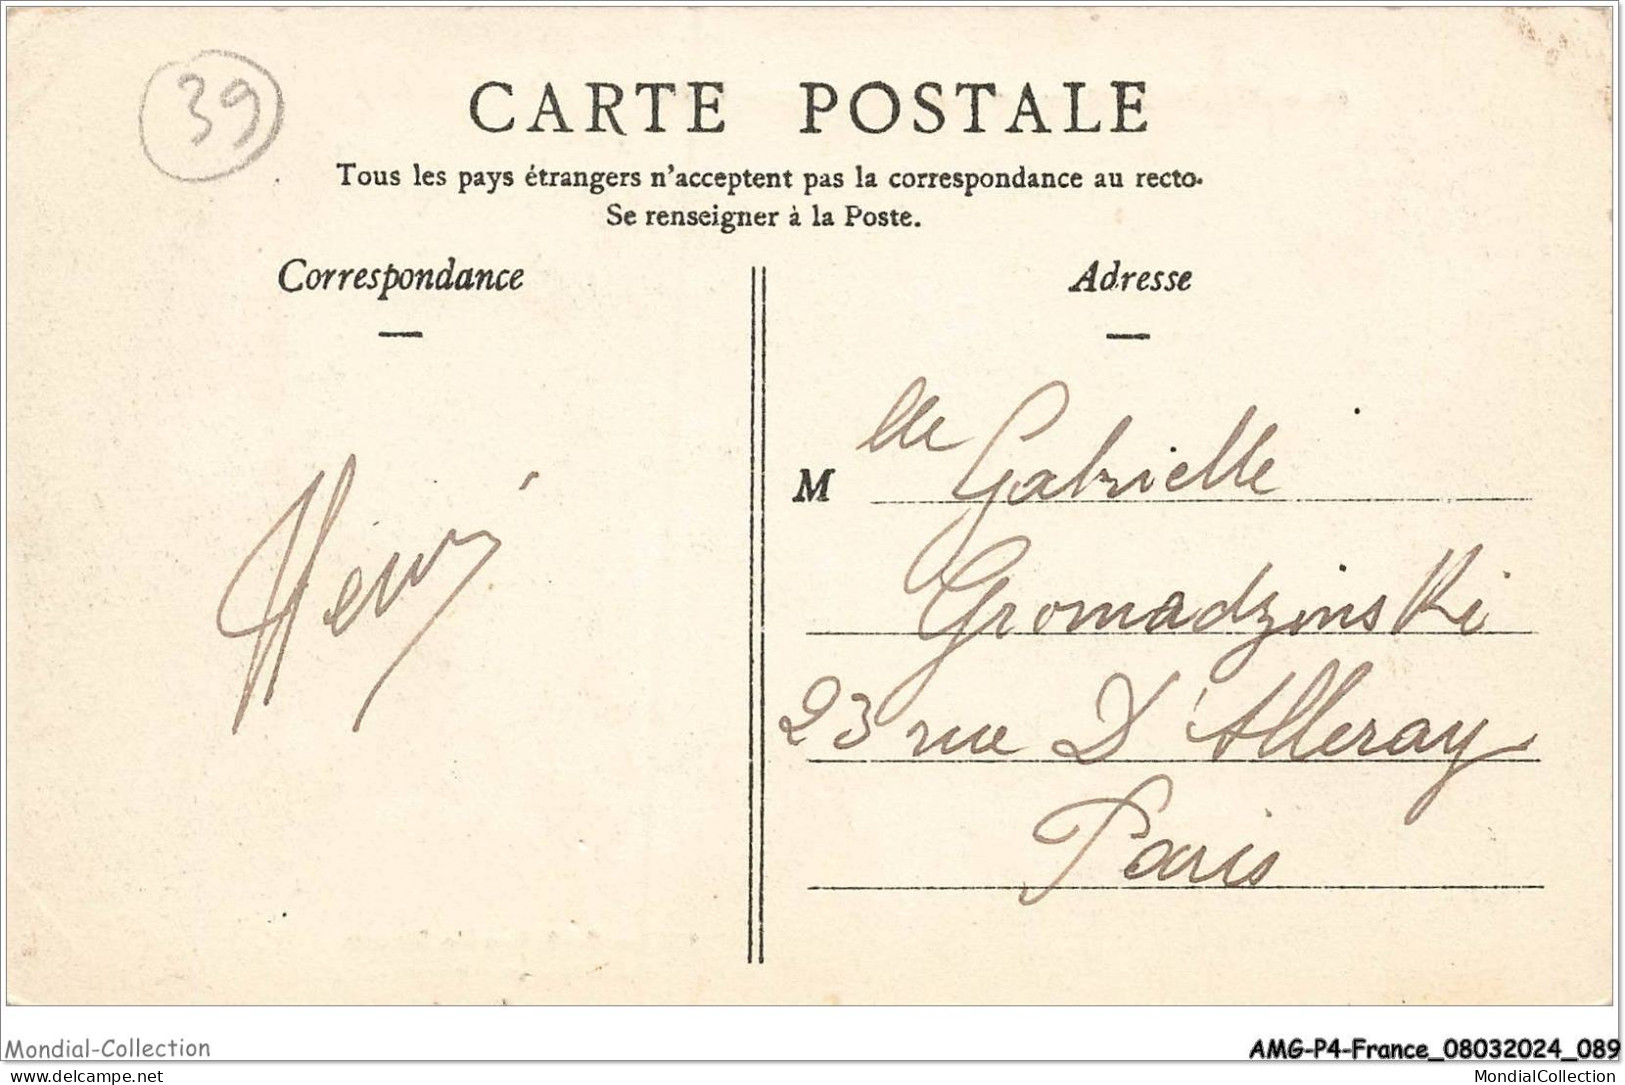 39
CARTE POSTALE
Tous les pays étrangers n'acceptent pas la correspondance au recto.
Se renseigner à la Poste.
Correspondance
Adresse
Henri
Mlle Gabrielle
Gromadzinski
23 rue D'Alleray
Paris
Mondial-Collection
AMG-P4-France_08032024_089
delcampe.net
MondialCollection